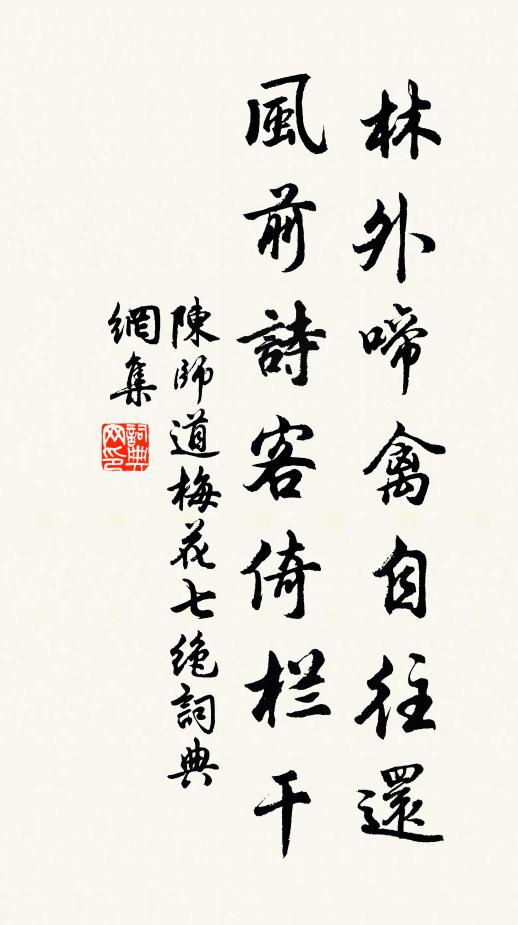 林外啼禽自往還
風前詩客倚栏干
陳師道梅花七絶詞典
網集
詞典网印